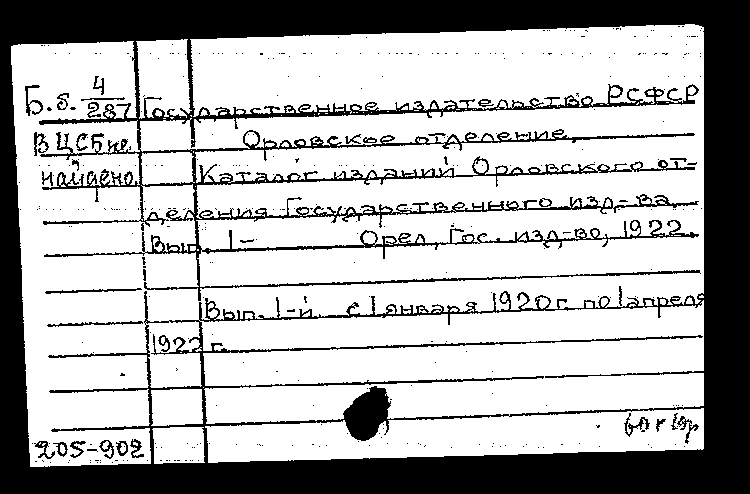 Б.г. 4/287 Государственное издательство РСФСР
В ЦСБ не Орловское отделение.
найдено. Каталог изданий Орловского от-
деления Государственного изд-ва.
Вып. I- Орел, Гос. изд-во, 1922.
Вып. I-й с 1 января 1920 г. по 1 апреля
1922 г.
205-902